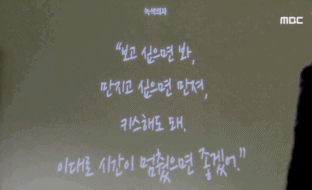 녹색의자
MBC
"보고 싶으면 봐,
만지고 싶으면 만져,
키스해도 돼.
이대로 시간이 멈췄으면 좋겠어."